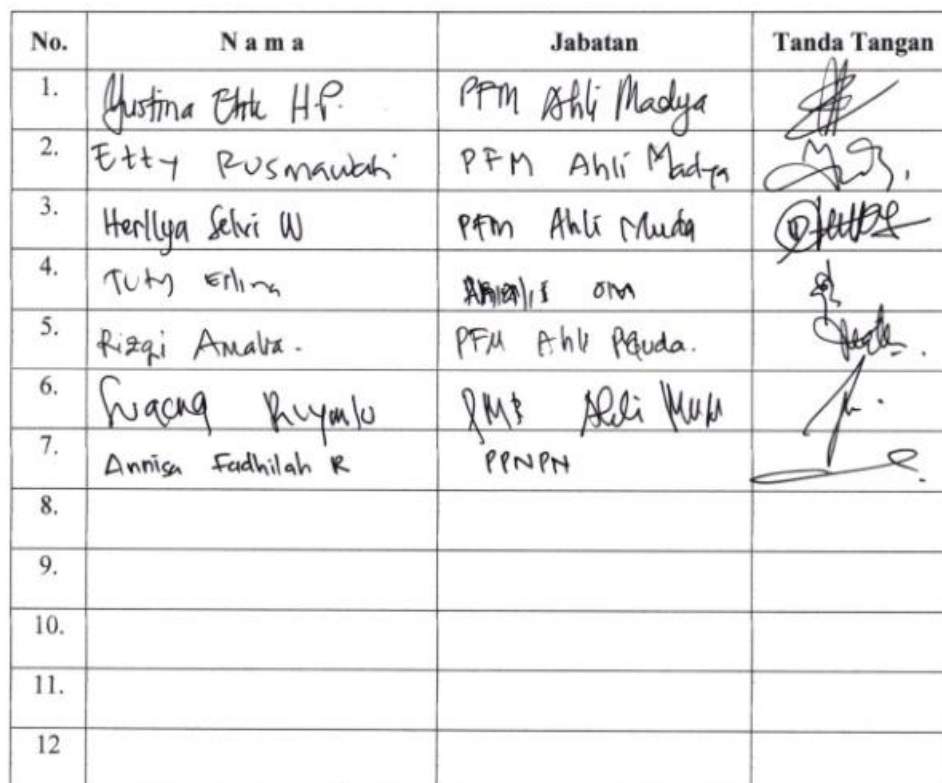 No. N a m a Jabatan Tanda Tangan
1. Yustina Etik H.P. PFM Ahli Madya
2. Etty Rusmawati PFM Ahli Madya
3. Herllya Selvi W PFM Ahli Muda
4. Tuty Erlina
5. Rizqi Amalia. PFM Ahli
6. Ahli
7. Annisa Fadhilah R PPNPN
8.
9.
10.
11.
12